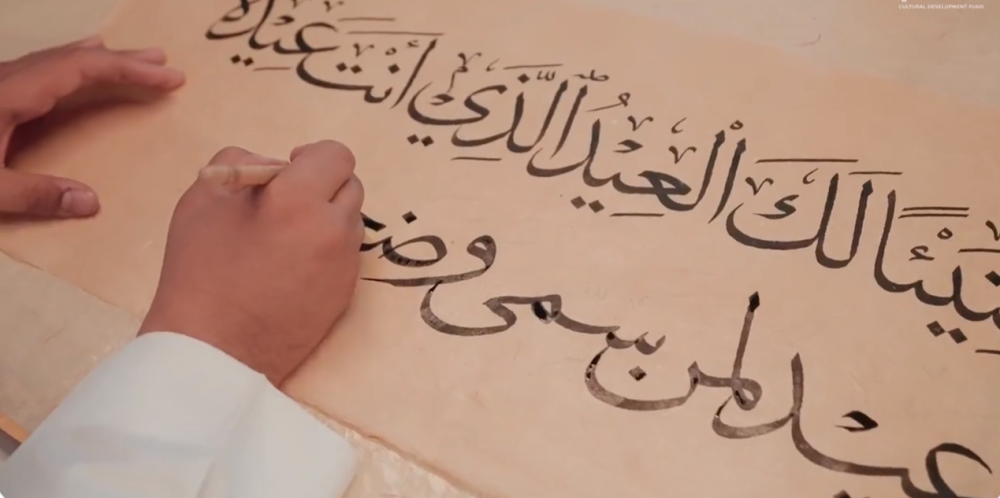 CULTURAL DEVELOPMENT FUND
هَنِيْئًا لَكَ الْعِيْدُ الَّذِي أَنْتَ عِيْدُهُ
عيد لمن سمى